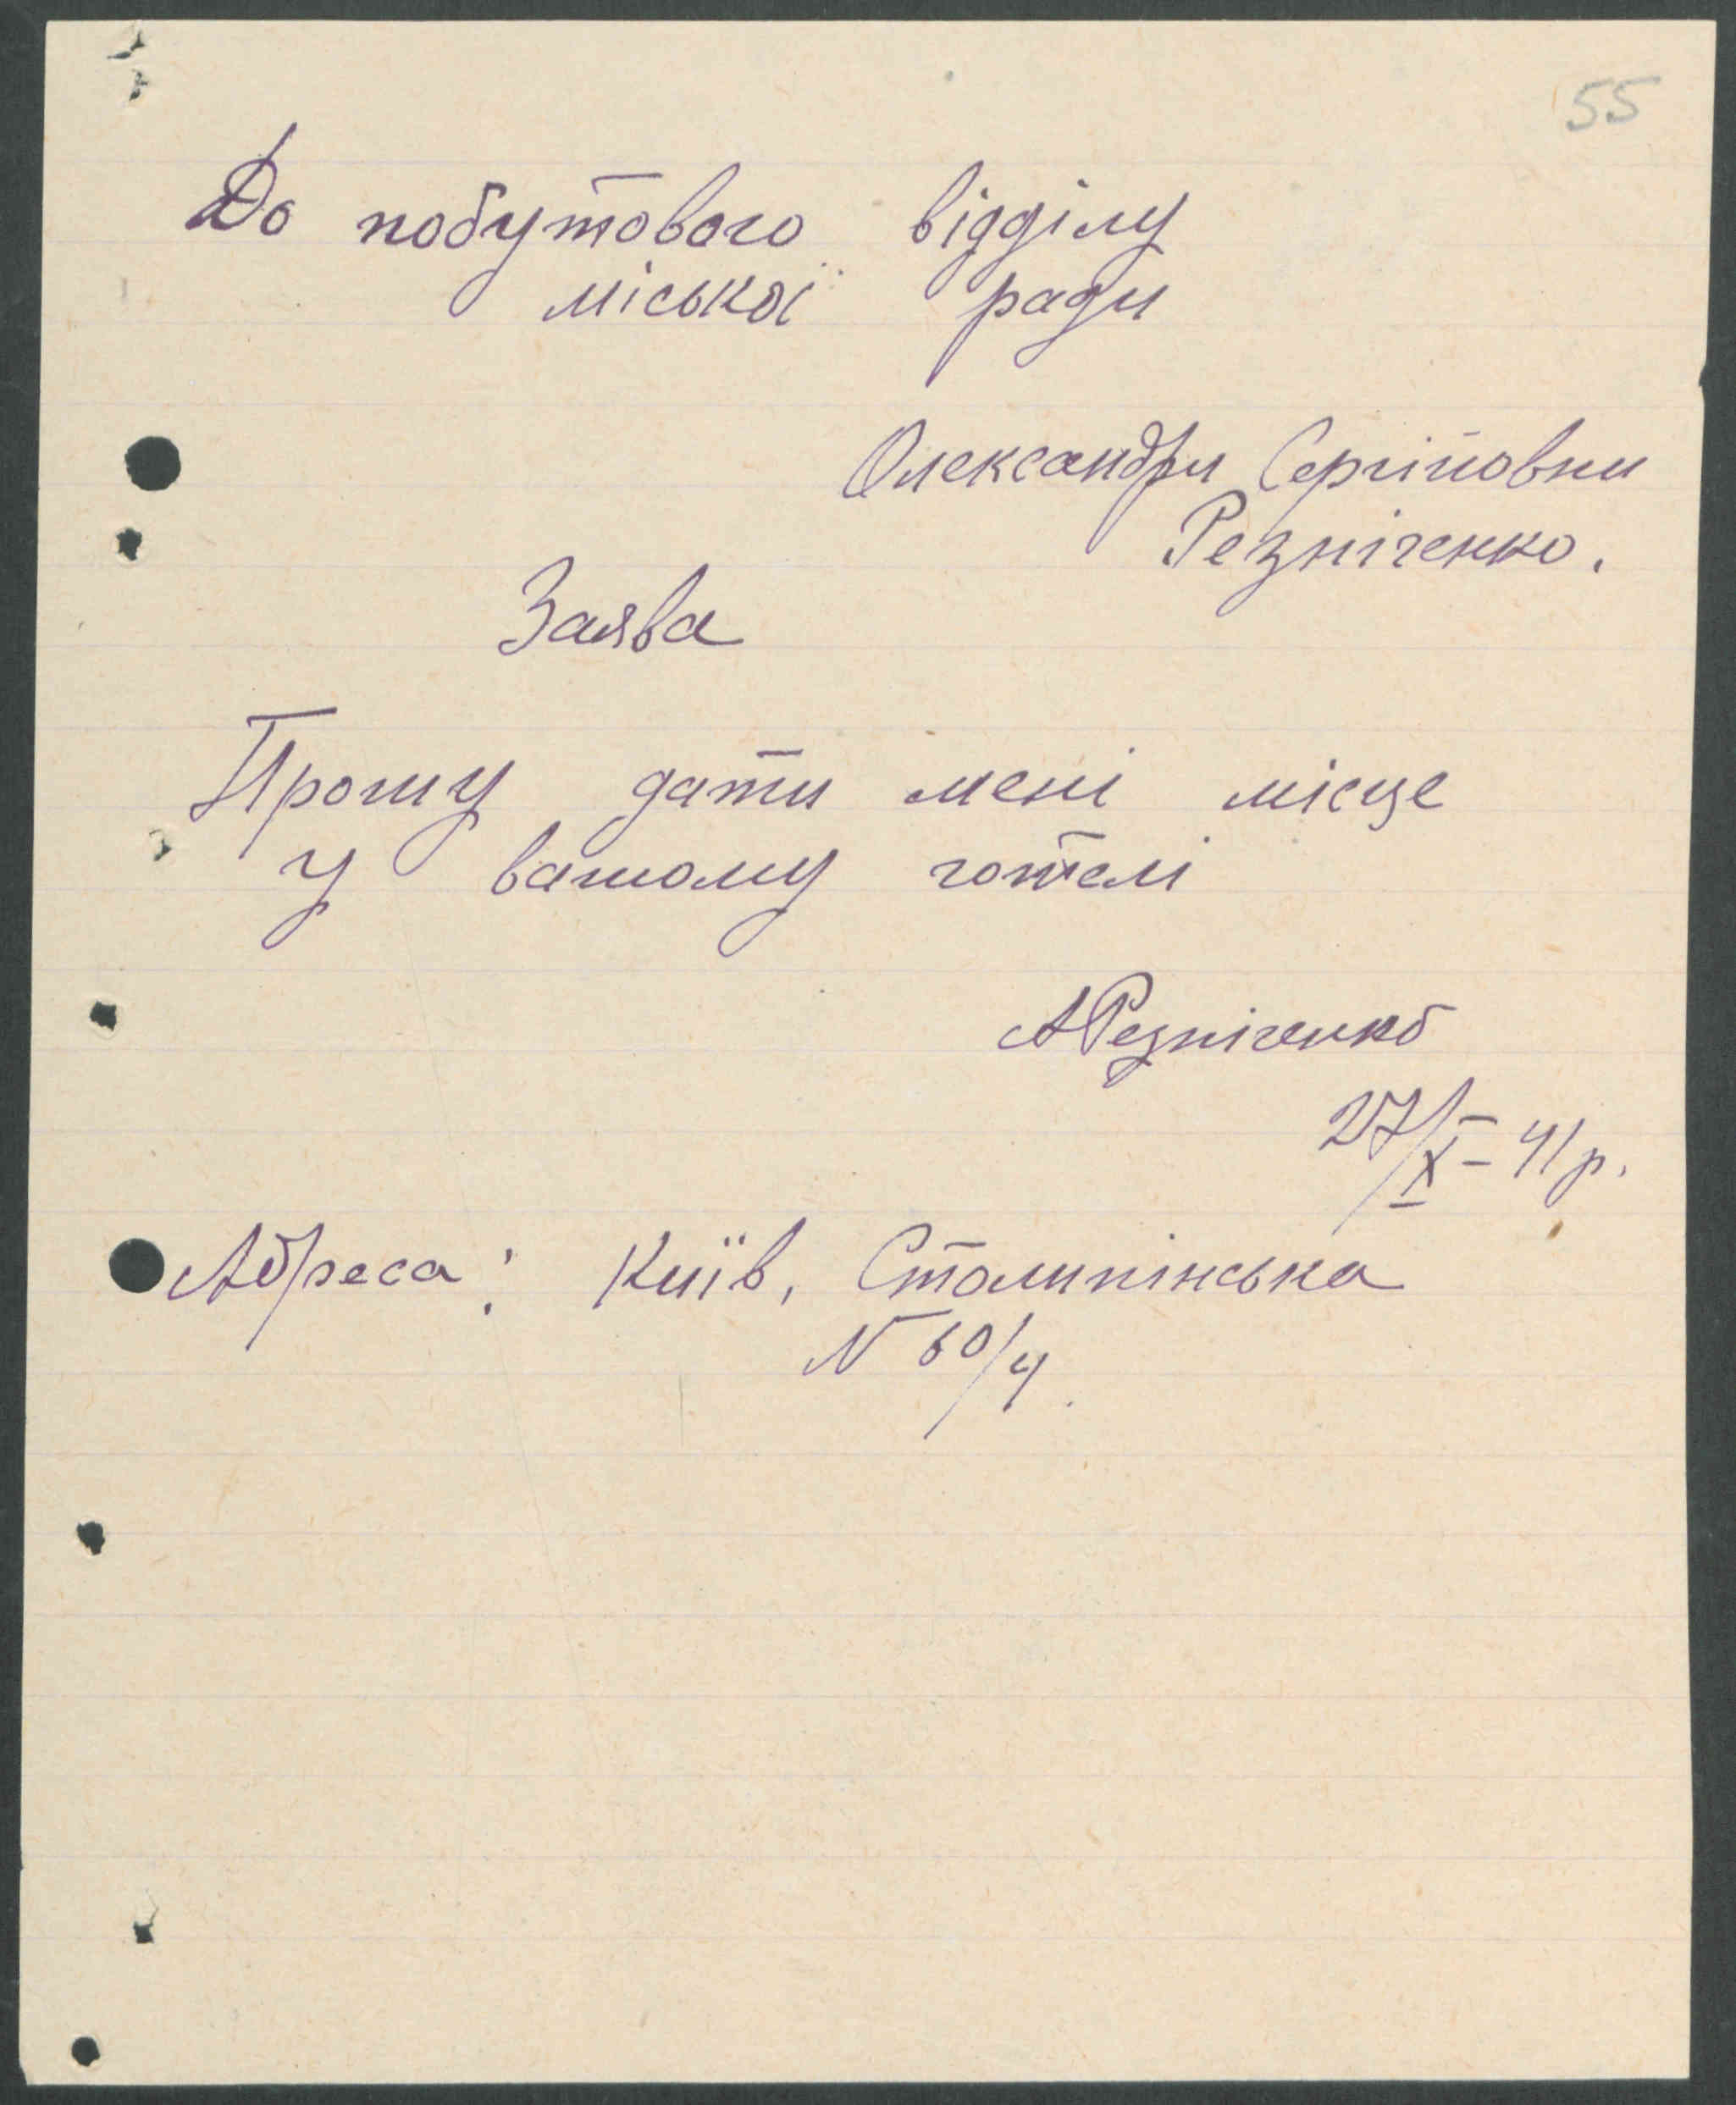 55
До побутового відділу
міської ради
Олександри Сергіївни
Резніченко.
Заява
Прошу дати мені місце
у вашому готелі
АРезніченко
27/X – 41 р.
Адреса: Київ, Столипінська
N 60/4